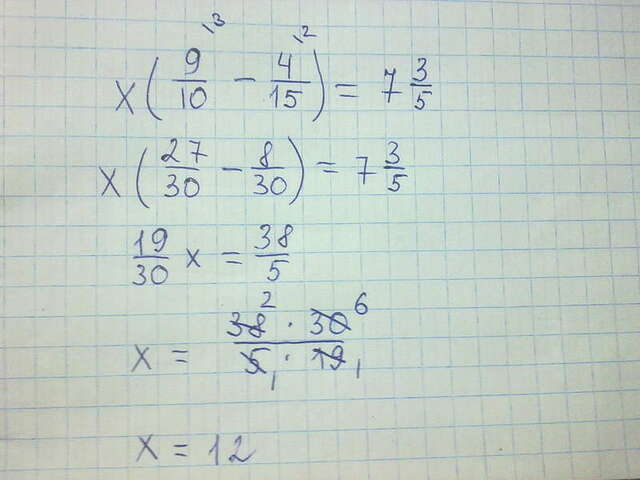 x(9/10 ,3 - 4/15 ,2) = 7 3/5
x(27/30 - 8/30) = 7 3/5
19/30 x = 38/5
x = 38 2 · 30 6 / 5 1 · 19 1
x = 12